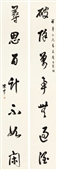 破除萬事無過酒
尋思百計不如閑